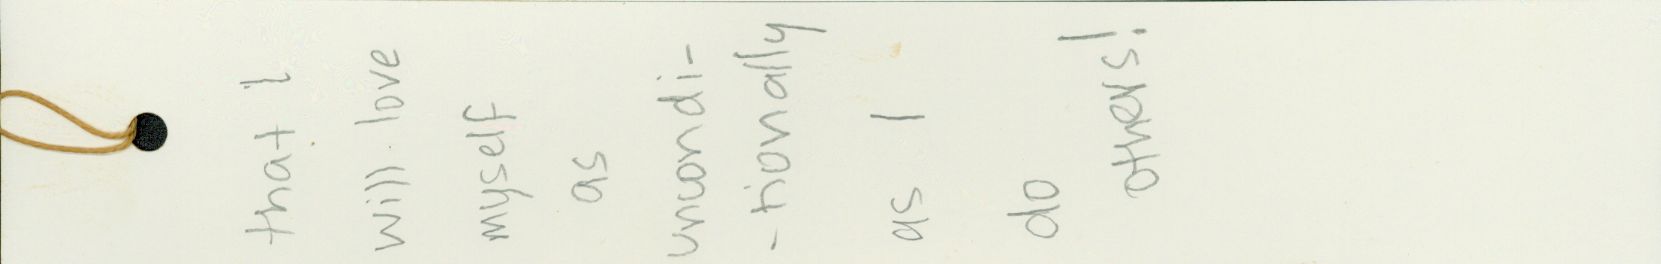 that I
will love
myself
as
uncondi-
-tionally
as I
do
others!